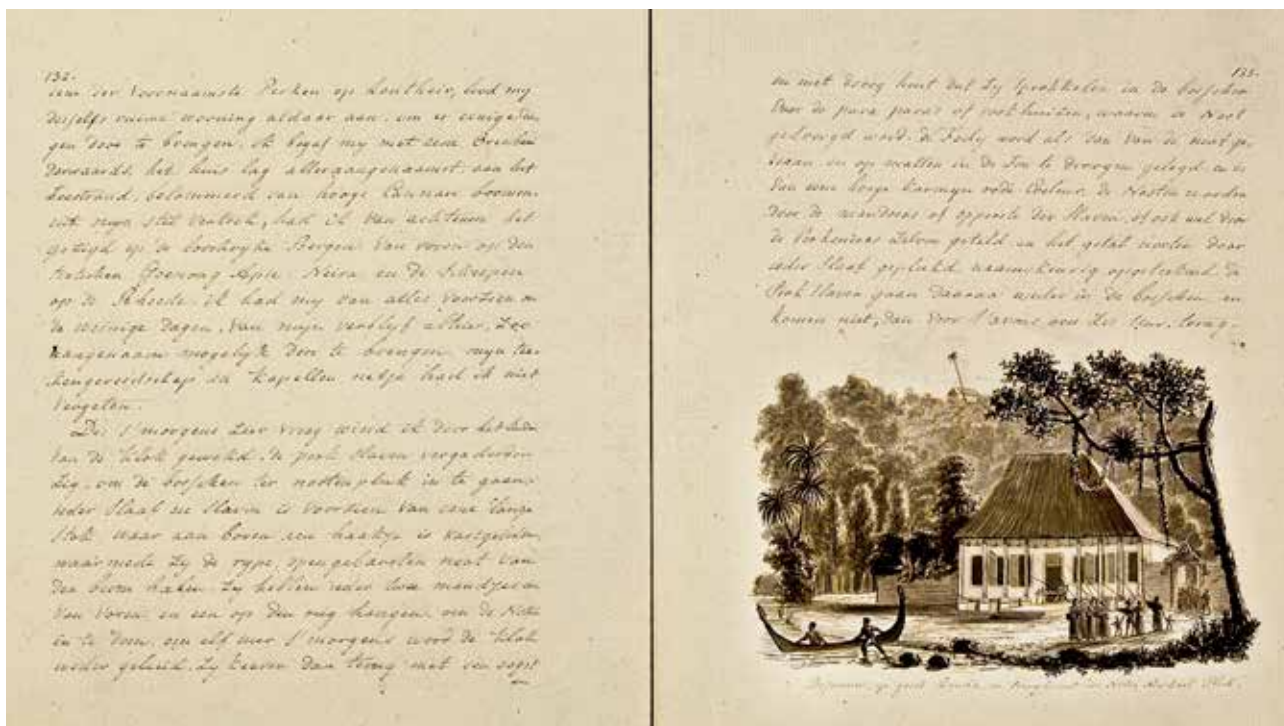 132.
een der voornaamste Perken op Lonthoir, bood my
deszelfs ruime wooning aldaar aan, om er eenige da
gen door te brengen. ik begaf my met een
derwaards, het huis lag alleraangenaamst aan het
Zeestrand, belommerd van hooge Cannari boomen.
uit myn had ik van achteren het
gezigt op de Bergen van voren op den
Goenong Apie, Neira en de Schepen
op de Rheede. ik had my van alles voorzien om
de weinige dagen, van myn verblyf alhier, Zoo
aangenaam mogelyk door te brengen myn tee-
kengereedschap en kapellen netje had ik niet
vergeten.
Des s'morgens Zeer vroeg wierd ik door het luiden
van de klok gewekt. de perk slaven vergaderden
Zig, om de bosschen ter nootenpluk in te gaan,
ieder Slaaf en Slavin is voorzien van eene lange
Stok waar aan boven een haakje is
waarmede Zy de rype, open gebarsten noot van
den boom haken. Zy hebben ieder twee mandjes een
van voren en een op den rug hangen om de Noten
in te doen. om elf uur s'morgens word de klok
weder geluid. Zy keeren dan terug met den oogst
133.
en met droog hout dat Zy sprokkelen in de bosschen
voor de para paras of rookhuizen, waarin de Noot
gedroogd word. de Foely word als dan van de noot ge-
daan en op matten in de Zon te droogen gelegd en is
van eene hooge karmyn rode Couleur. de Nooten worden
door de mandoors of opperste der Slaven, of ook wel door
de Perkeniers Zelven geteld en het getal nooten door
ieder Slaaf geplukt naauwkeurig opgetekend. de
Perk Slaven gaan daarna weder in de bosschen en
komen niet, dan voor s'avonds om Zes Uur, terug.